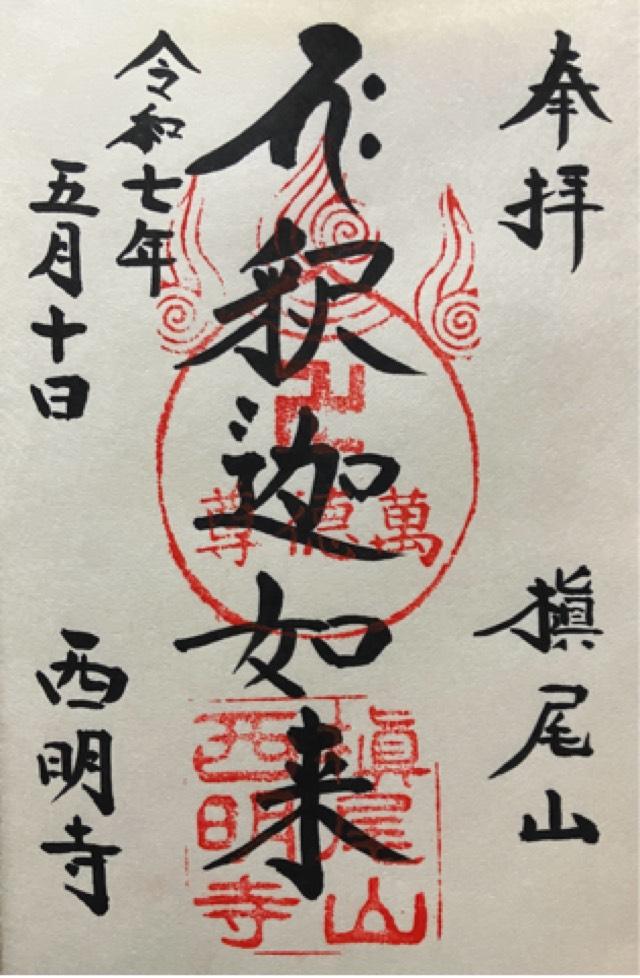 奉拝
槇尾山
𑖥𑖾
釈迦如来
令和七年
五月十日
西明寺
卍
萬德尊
槇尾山
西明寺